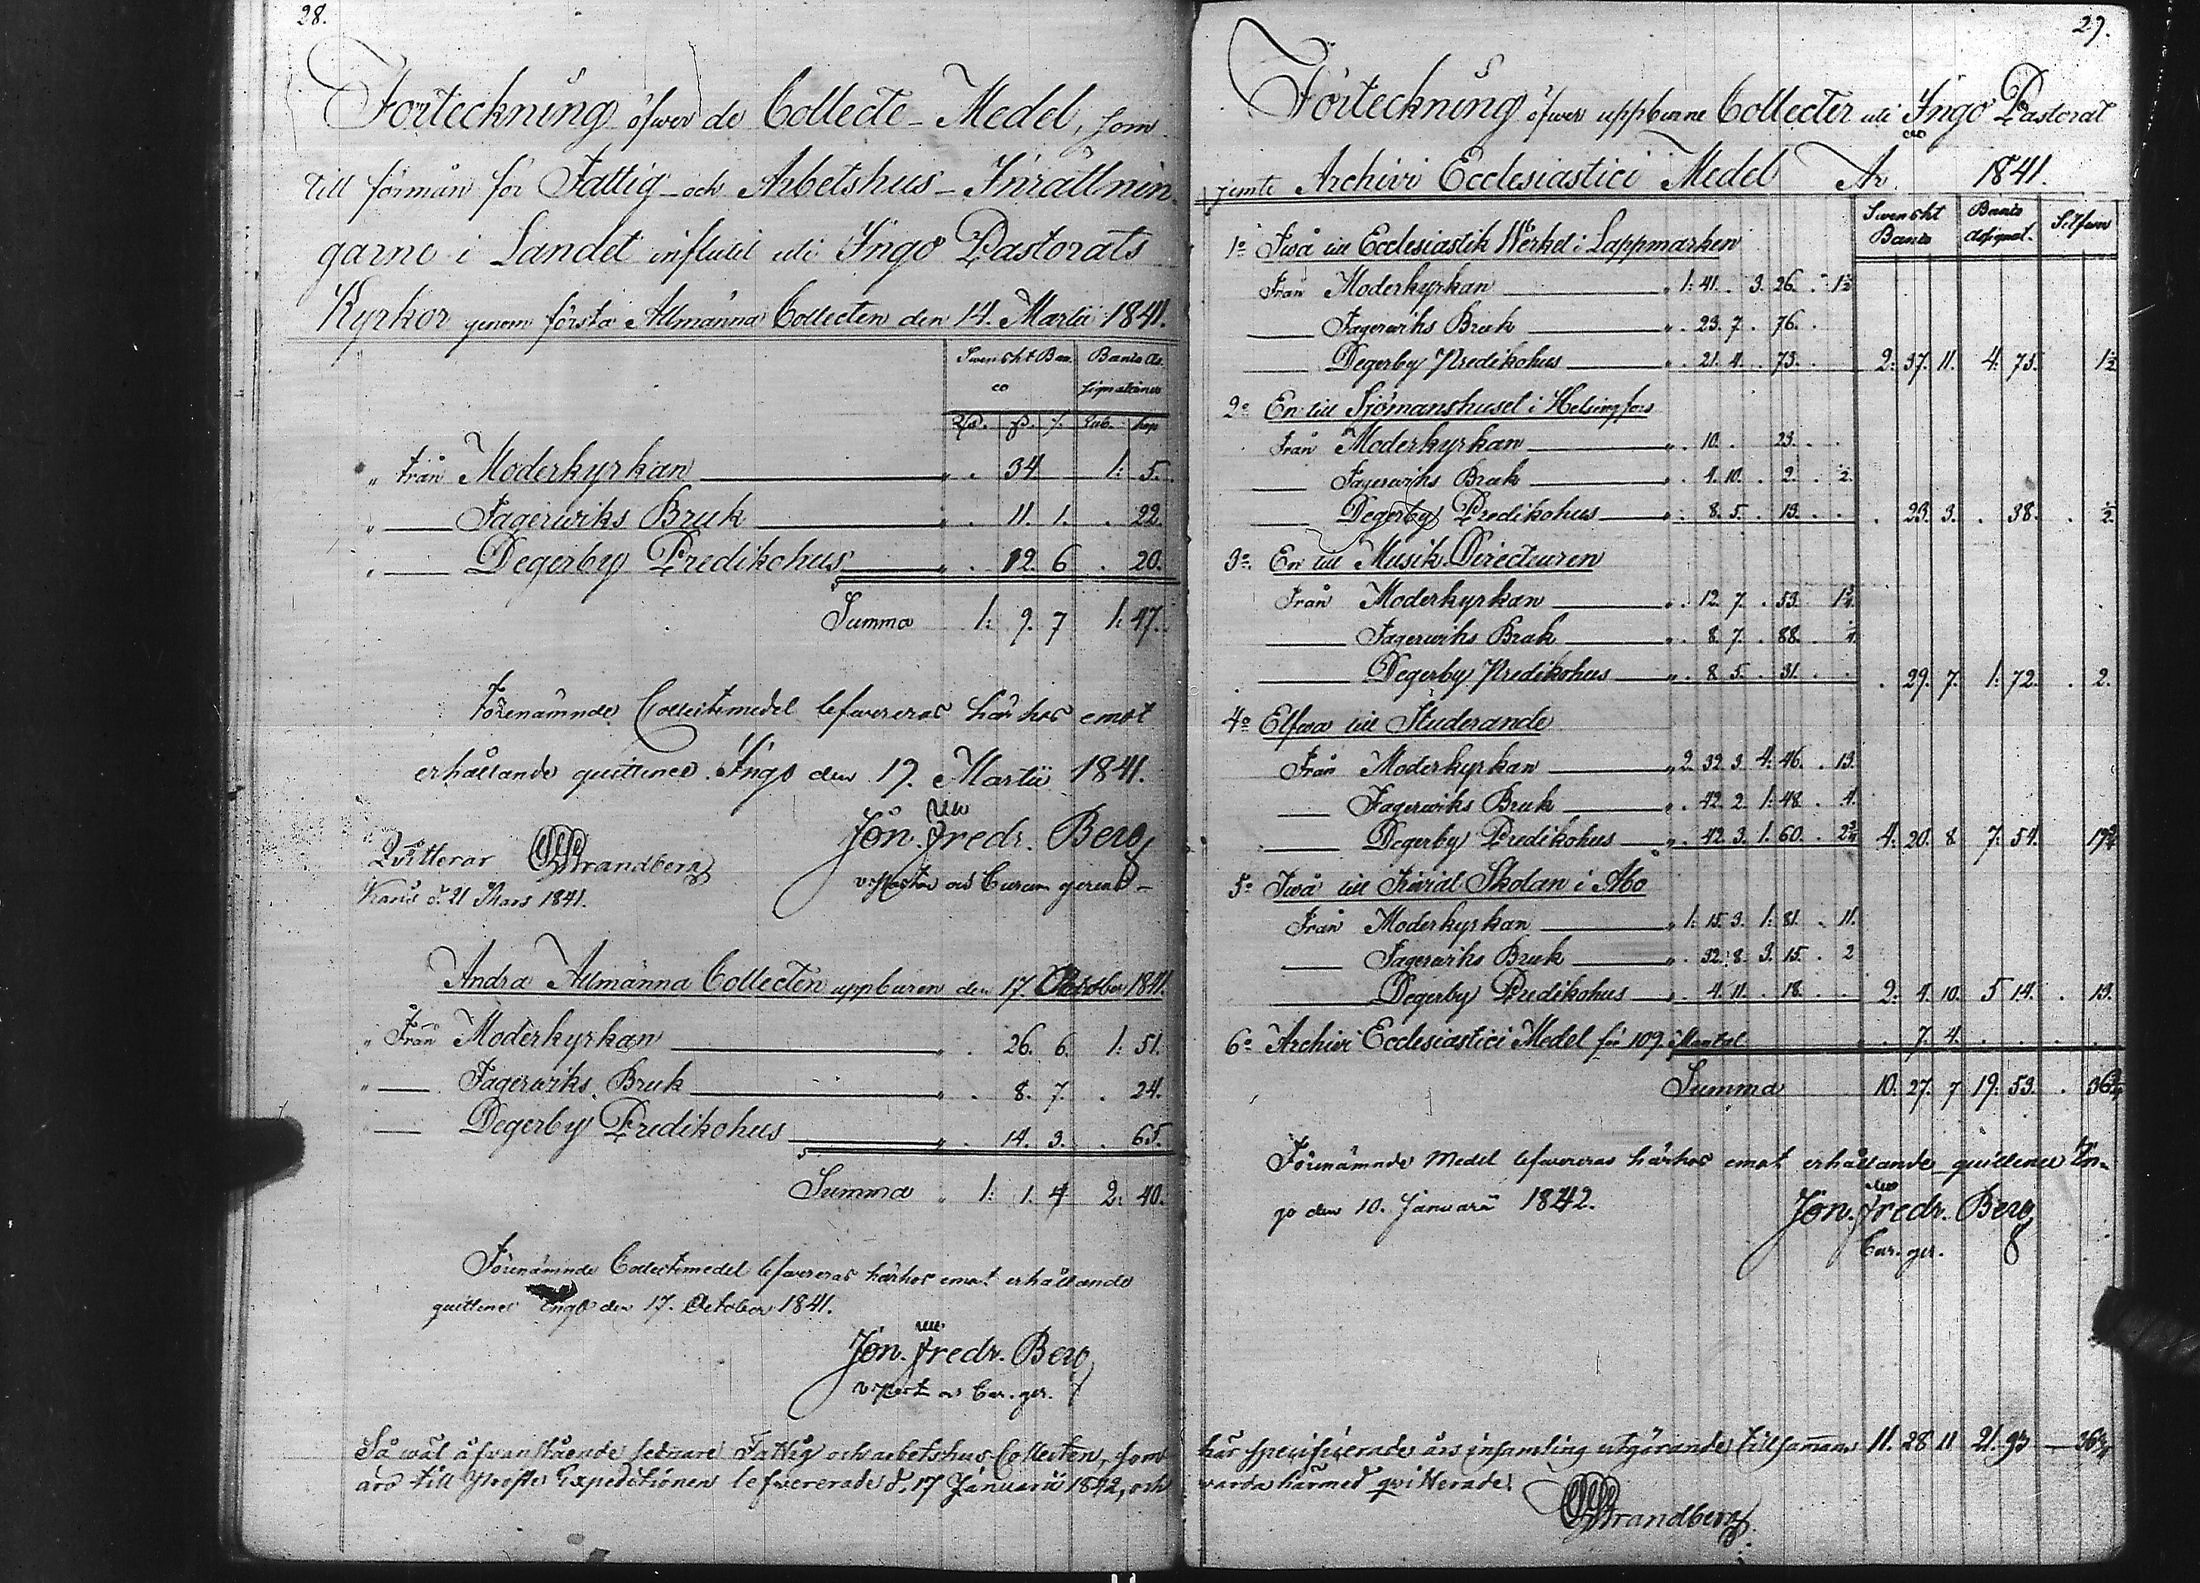 28.
Förteckning öfwer de Collecte-Medel, som
till förmån för Fattig- och Arbetshus-Inrättnin-
garne i Landet influtit uti Ingo Pastorats
Kyrkor genom första Allmänna Collecten den 14. Martii 1841.
Swenskt Ban- Banco As-
co signationer
Rd. s. r. Rub. kop
" från Moderkyrkan " . 34 1: 5.
" Fagerwiks Bruk " . 11. 1. . 22.
" Degerby Predikohus " . 12 6 . 20.
Summa 1: 9. 7 1: 47.
Förenämnde Collectemedel lefwereras härhos emot
erhållande quittence. Ingo den 19. Martii 1841.
Jon. Fredr. Berg
v: Pastor och Curam gerens
Qvitterar Strandberg
Karis d. 21 Mars 1841.
Andra Allmänna Collecten uppburen den 17. October 1841.
" Från Moderkyrkan " . 26. 6. 1: 51.
" Fagerwiks Bruk " . 8. 7. . 24.
Degerby Predikohus " . 14. 3. . 65.
Summa " 1: 1. 4 2: 40.
Förenämnde Collectemedel lefwereras härhos emot erhållande
quittence Ingo den 17. October 1841.
Jon. Fredr. Berg
v: Past. och Cur. ger.
Så wäl åfwanstående sednare Fattig och arbetshus Collecten, som
äro till Prosts Expeditionen lefwererade d. 17 Januarii 1842, och
29.
Förteckning öfwer uppburne Collecter uti Ingo Pastorat
jemte Archivi Ecclesiastici Medel År 1841.
Swenskt Banco Silfwer
Banco Assignat.
1o Twå till Ecclesiastik Werket i Lappmarken
Från Moderkyrkan " 1: 41. . 3. 26. . 1½
Fagerwiks Bruk " . 23. 7. . 76. .
Degerby Predikohus " . 21. 4. . 73. . 2: 37. 11. 4: 75. 1½
2o En till Sjömanshuset i Helsingfors
Från Moderkyrkan " . 10. . 23. . .
Fagerwiks Bruk " . 4. 10. . 2. . ½.
Degerby Predikohus " . 8. 5. . 13. . . . 23. 3. . 38. . ½.
3o En till Musik-Directeuren
Från Moderkyrkan " . 12. 7. . 53. 1¾
Fagerwiks Bruk " . 8. 7. . 88. ¼
Degerby Predikohus " . 8. 5. . 31. . . . 29. 7. 1: 72. . 2.
4o Elfwa till Studerande
Från Moderkyrkan " 2. 32. 3. 4: 46. . 13.
Fagerwiks Bruk " . 42. 2. 1: 48. . 4.
Degerby Predikohus " . 42. 3. 1: 60. . 2¾ 4: 20. 8. 7: 54. 19¾
5o Twå till Trivial Skolan i Åbo
Från Moderkyrkan " 1: 15. 3. 1: 81. . 11.
Fagerwiks Bruk " . 32. 8. 3. 15. . 2
Degerby Predikohus " . 4. 11. . 18. . . 2: 4. 10. 5 14. . 13.
6o Archivi Ecclesiastici Medel för 109. Mantal . 7. 4. . . .
Summa 10: 27. 7 19: 53. . 36¾
Förenämnde Medel lefwereras härhos emot erhållande quittence In-
go den 10. Januarii 1842.
Jon. Fredr. Berg
Cur. ger.
här specificerade års insamling utgörande tillsammans 11. 28 11 21. 93 — 36¾
warda härmed qvitterade.
Strandberg